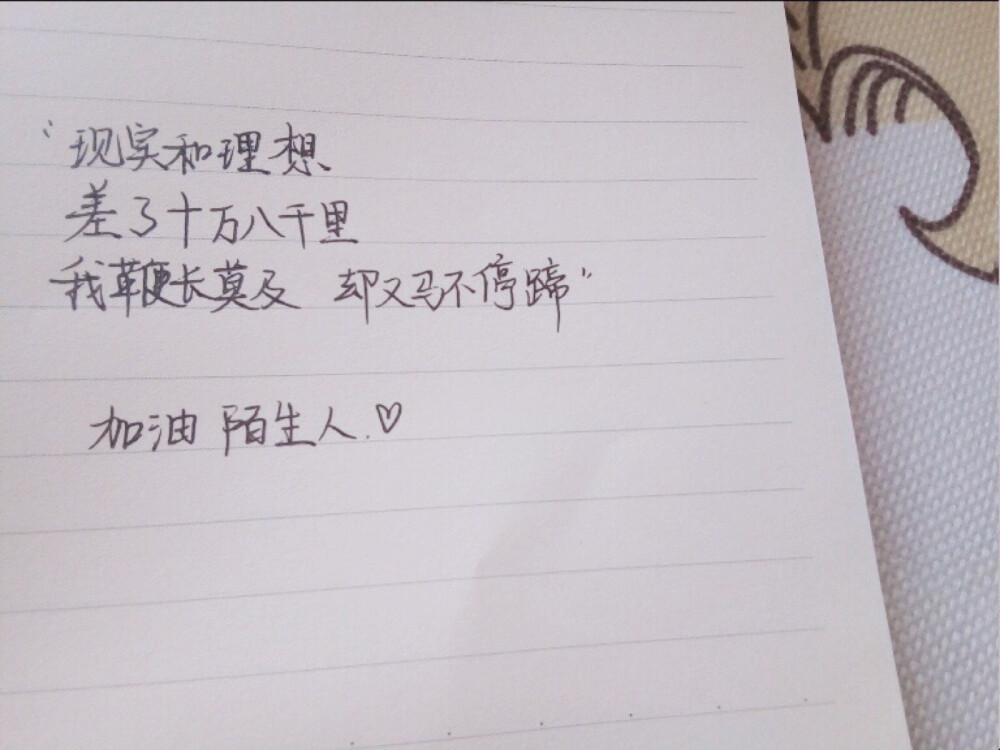 "现实和理想
差了十万八千里
我鞭长莫及 却又马不停蹄"
加油 陌生人.♡